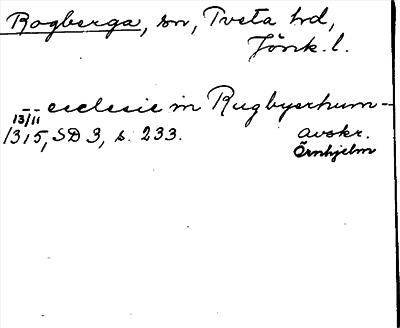 Rogberga, sn, Tveta hd,
Jönk. l.
-- ecclesie in Rugbyerhum -
13/11
1315, SD 3, s. 233. avskr.
Örnhjelm